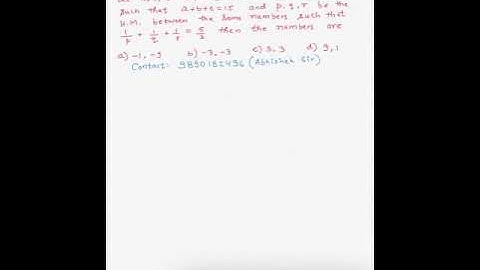 such that a+b+c=15 and p, q, r be the
H.M. between the same numbers such that
1/p + 1/q + 1/r = 5/3 then the numbers are
a) -1, -9 b) -3, -3 c) 3, 3 d) 9, 1
Contact: 9890182496 (Abhishek Sir)